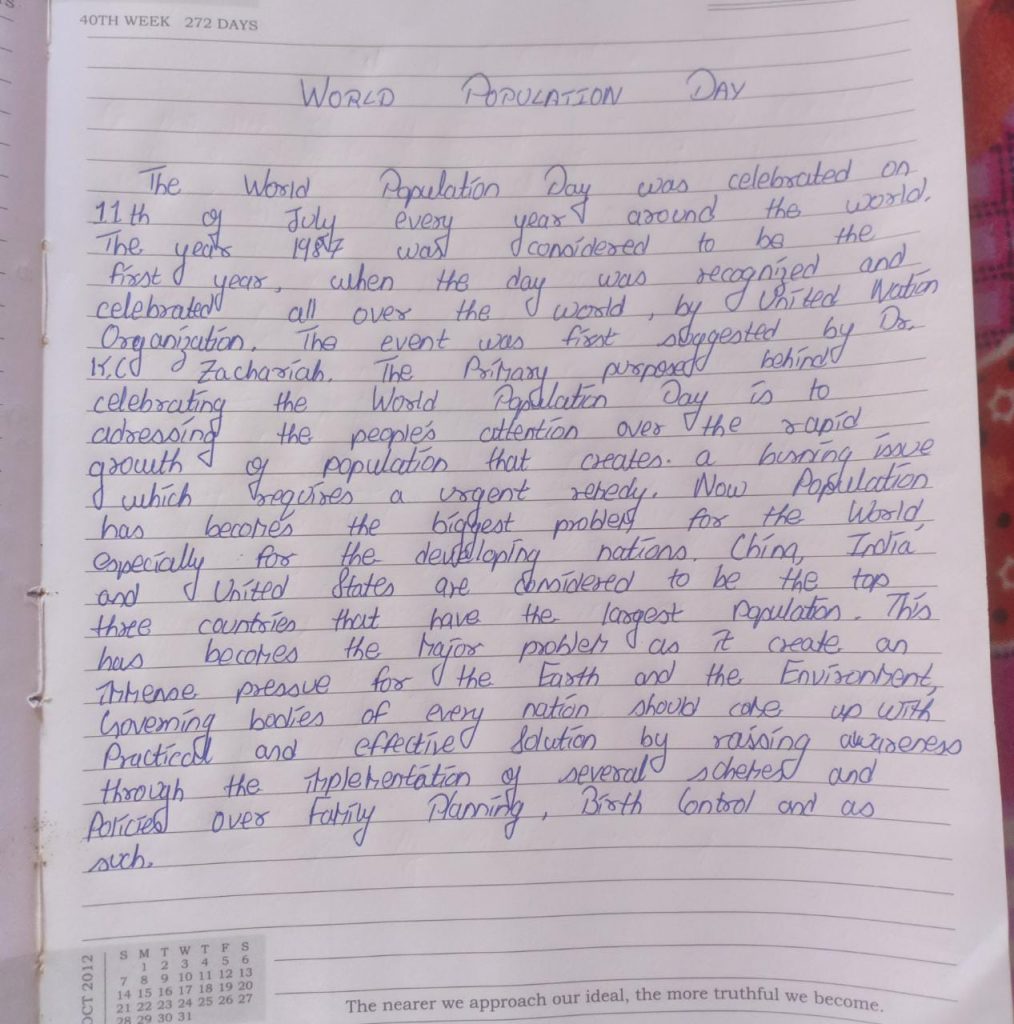 40TH WEEK 272 DAYS
WORLD POPULATION DAY
The World Population Day was celebrated on
11th of July every year around the world.
The year 1987 was considered to be the
first year, when the day was recognized and
celebrated all over the world, by United Nation
Organization. The event was first suggested by Dr.
K.C Zachariah. The Primary purpose behind
celebrating the World Population Day is to
adressing the people's attention over the rapid
growth of population that creates. a burning issue
which requires a urgent remedy. Now Population
has becomes the biggest problem for the World,
especially for the developing nations. China, India
and United States are considered to be the top
three countries that have the largest Population. This
has becomes the major problem as it create an
immense pressue for the Earth and the Environment,
Governing bodies of every nation should come up with
Practical and effective Solution by raising awareness
through the implementation of several schemes and
Policies over Family Planning, Birth Control and as
such.
OCT 2012
S M T W T F S
1 2 3 4 5 6
7 8 9 10 11 12 13
14 15 16 17 18 19 20
21 22 23 24 25 26 27
28 29 30 31
The nearer we approach our ideal, the more truthful we become.